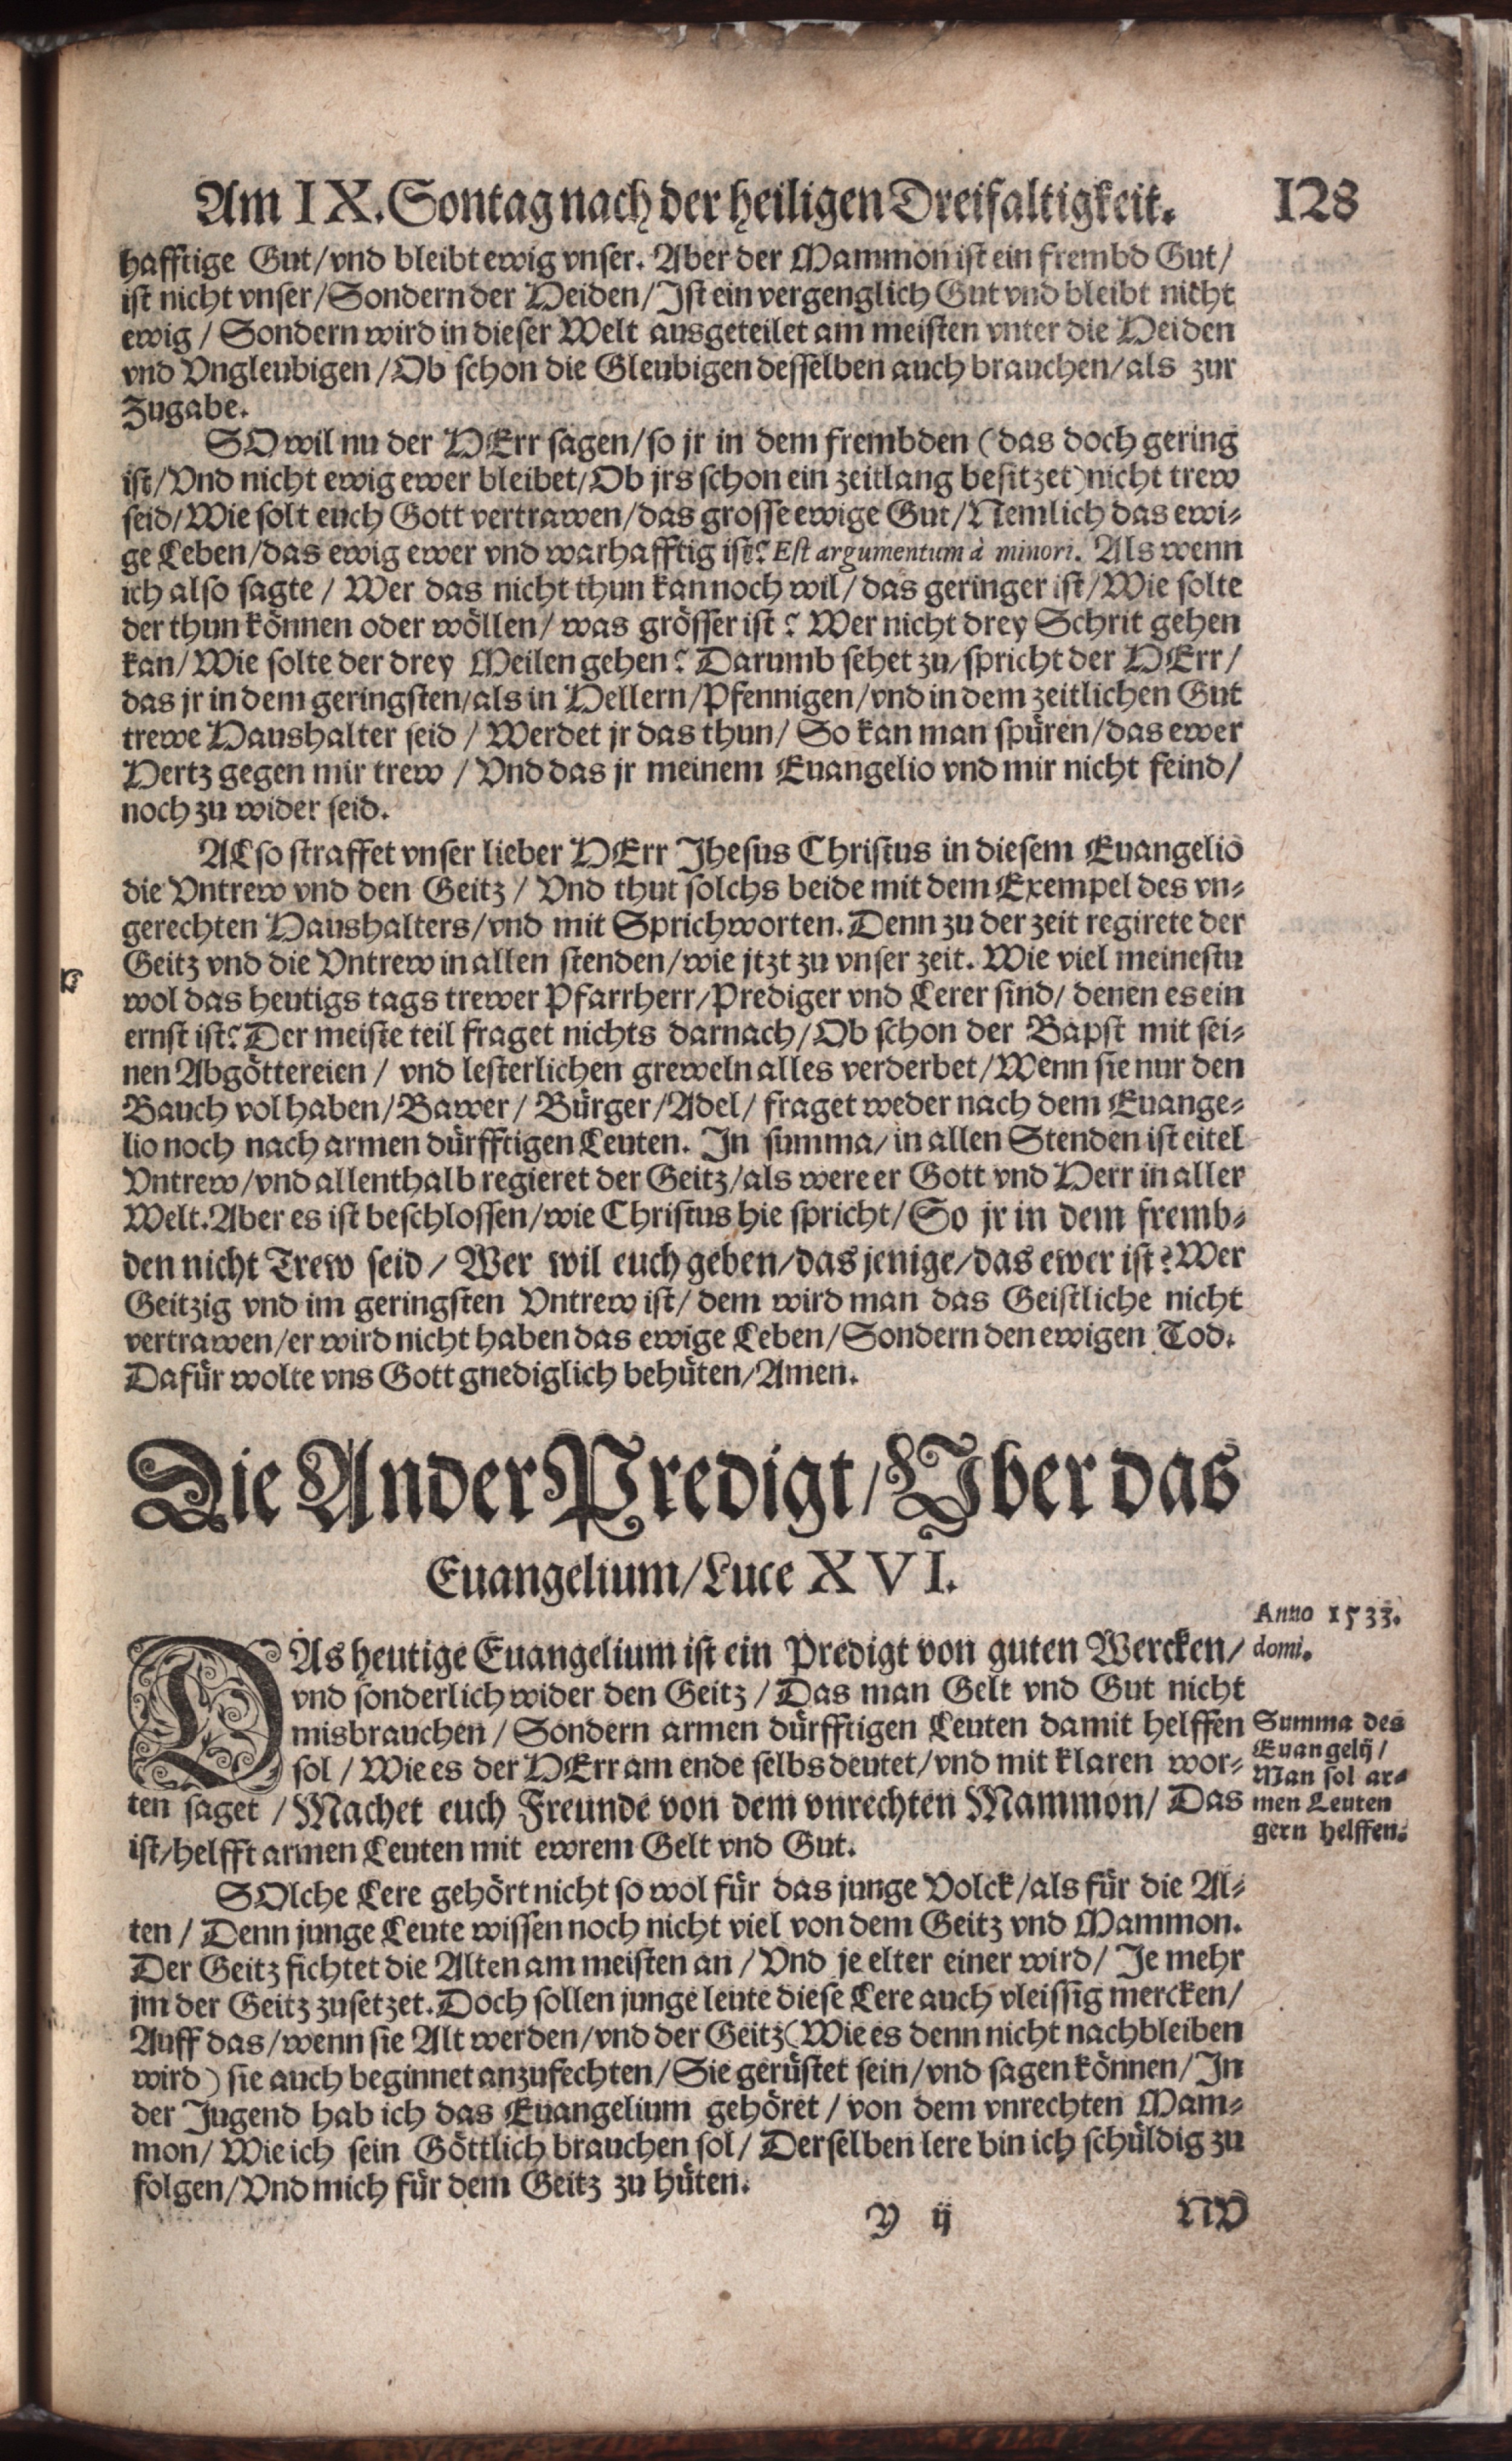 Am IX. Sontag nach der heiligen Dreifaltigkeit. 128
hafftige Gut/vnd bleibt ewig vnser. Aber der Mammon ist ein frembd Gut/
ist nicht vnser/Sondern der Heiden/Ist ein vergenglich Gut vnd bleibt nicht
ewig/Sondern wird in dieser Welt ausgeteilet am meisten vnter die Heiden
vnd Vngleubigen/Ob schon die Gleubigen desselben auch brauchen/als zur
Zugabe.
SO wil nu der HErr sagen/so jr in dem frembden (das doch gering
ist/Vnd nicht ewig ewer bleibet/Ob jrs schon ein zeitlang besitzet) nicht trew
seid/Wie solt euch Gott vertrawen/das grosse ewige Gut/Nemlich das ewi-
ge Leben/das ewig ewer vnd warhafftig ist? Est argumentum à minori. Als wenn
ich also sagte/Wer das nicht thun kan noch wil/das geringer ist/Wie solte
der thun können oder wöllen/was grösser ist? Wer nicht drey Schrit gehen
kan/Wie solte der drey Meilen gehen? Darumb sehet zu/spricht der HErr/
das jr in dem geringsten/als in Hellern/Pfennigen/vnd in dem zeitlichen Gut
trewe Haushalter seid/Werdet jr das thun/So kan man spüren/das ewer
Hertz gegen mir trew/Vnd das jr meinem Euangelio vnd mir nicht feind/
noch zu wider seid.
ALso straffet vnser lieber HErr Jhesus Christus in diesem Euangelio
die Vntrew vnd den Geitz/Vnd thut solchs beide mit dem Exempel des vn-
gerechten Haushalters/vnd mit Sprichworten. Denn zu der zeit regirete der
Geitz vnd die Vntrew in allen stenden/wie jtzt zu vnser zeit. Wie viel meinestu
wol das heutigs tags trewer Pfarrherr/Prediger vnd Lerer sind/denen es ein
ernst ist? Der meiste teil fraget nichts darnach/Ob schon der Bapst mit sei-
nen Abgöttereien/vnd lesterlichen greweln alles verderbet/Wenn sie nur den
Bauch vol haben/Bawer/Bürger/Adel/fraget weder nach dem Euange-
lio noch nach armen dürfftigen Leuten. In summa/in allen Stenden ist eitel
Vntrew/vnd allenthalb regieret der Geitz/als were er Gott vnd Herr in aller
Welt. Aber es ist beschlossen/wie Christus hie spricht/So jr in dem fremb-
den nicht Trew seid/Wer wil euch geben/das jenige/das ewer ist? Wer
Geitzig vnd im geringsten Vntrew ist/dem wird man das Geistliche nicht
vertrawen/er wird nicht haben das ewige Leben/Sondern den ewigen Tod.
Dafür wolte vns Gott gnediglich behüten/Amen.
Die Ander Predigt/Vber das
Euangelium/Luce XVI.
Anno 1533.
domi.
DAs heutige Euangelium ist ein Predigt von guten Wercken/
vnd sonderlich wider den Geitz/Das man Gelt vnd Gut nicht
misbrauchen/Sondern armen dürfftigen Leuten damit helffen
sol/Wie es der HErr am ende selbs deutet/vnd mit klaren wor-
ten saget/Machet euch Freunde von dem vnrechten Mammon/Das
ist/helfft armen Leuten mit ewrem Gelt vnd Gut.
Summa des
Euangelij/
Man sol ar-
men Leuten
gern helffen.
SOlche Lere gehört nicht so wol für das junge Volck/als für die Al-
ten/Denn junge Leute wissen noch nicht viel von dem Geitz vnd Mammon.
Der Geitz fichtet die Alten am meisten an/Vnd je elter einer wird/Je mehr
jm der Geitz zusetzet. Doch sollen junge leute diese Lere auch vleissig mercken/
Auff das/wenn sie Alt werden/vnd der Geitz (Wie es denn nicht nachbleiben
wird) sie auch beginnet anzufechten/Sie gerüstet sein/vnd sagen können/In
der Jugend hab ich das Euangelium gehöret/von dem vnrechten Mam-
mon/Wie ich sein Göttlich brauchen sol/Derselben lere bin ich schüldig zu
folgen/Vnd mich für dem Geitz zu hüten.
Y ij NV